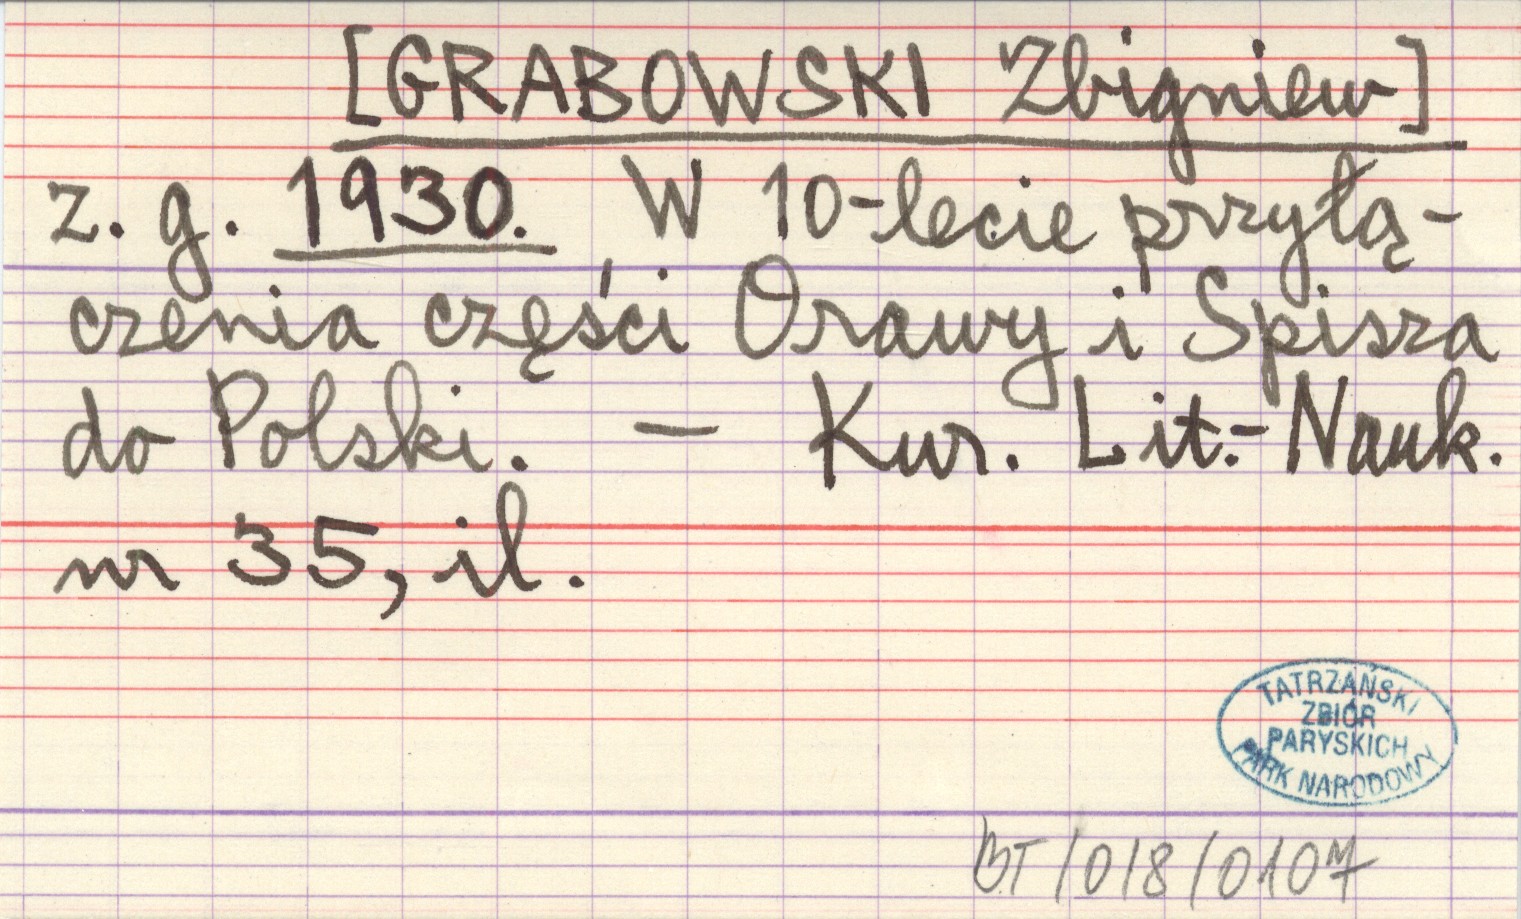 [GRABOWSKI Zbigniew]
z. g. 1930. W 10-lecie przyłą-
czenia części Orawy i Spisza
do Polski. — Kur. Lit.-Nauk.
nr 35, il.
TATRZAŃSKI
ZBIÓR
PARYSKICH
PARK NARODOWY
BT/018/0107